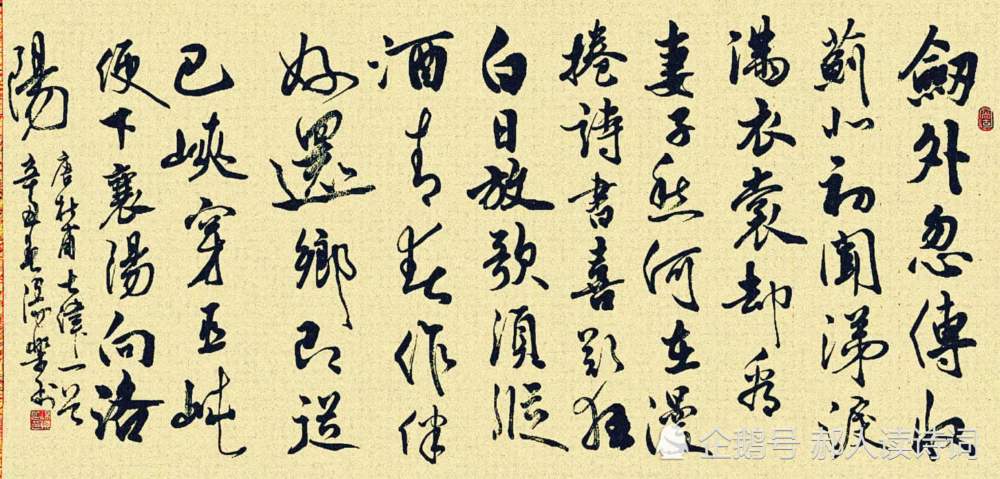 劔外忽傳收
薊北初聞涕淚
滿衣裳却看
妻子愁何在漫
捲詩書喜欲狂
白日放歌須縱
酒青春作伴
好還鄉即從
巴峽穿巫峽
便下襄陽向洛
陽
唐杜甫七律一首
辛丑春
企鹅号 郝人读诗词